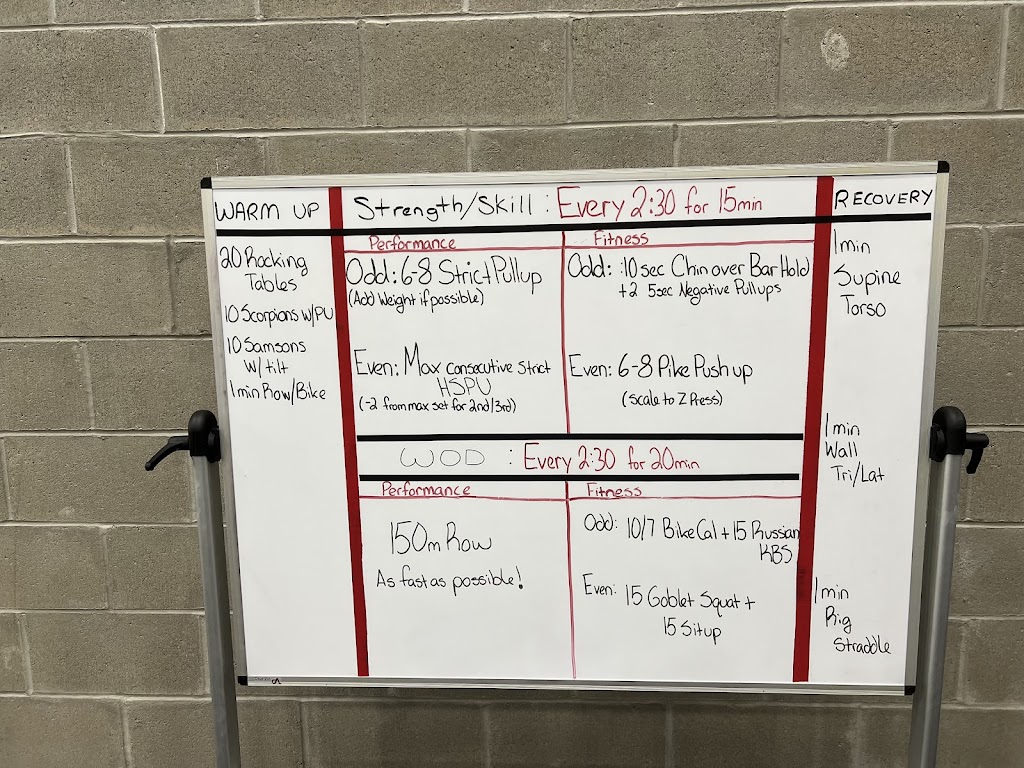 WARM UP
20 Rocking
Tables
10 Scorpions w/PU
10 Samsons
w/tilt
1min Row/Bike
Strength/Skill : Every 2:30 for 15min
Performance
Odd: 6-8 Strict Pullup
(Add Weight if possible)
Even: Max consecutive Strict
HSPU
(-2 from max set for 2nd/3rd)
Fitness
Odd: :10sec Chin over Bar Hold
+2 5sec Negative Pullups
Even: 6-8 Pike Pushup
(Scale to Z Press)
WOD : Every 2:30 for 20min
Performance
150m Row
As fast as possible!
Fitness
Odd: 10/7 Bike Cal + 15 Russian
KBS
Even: 15 Goblet Squat +
15 Situp
RECOVERY
1min
Supine
Torso
1min
Wall
Tri/Lat
1min
Rig
Straddle